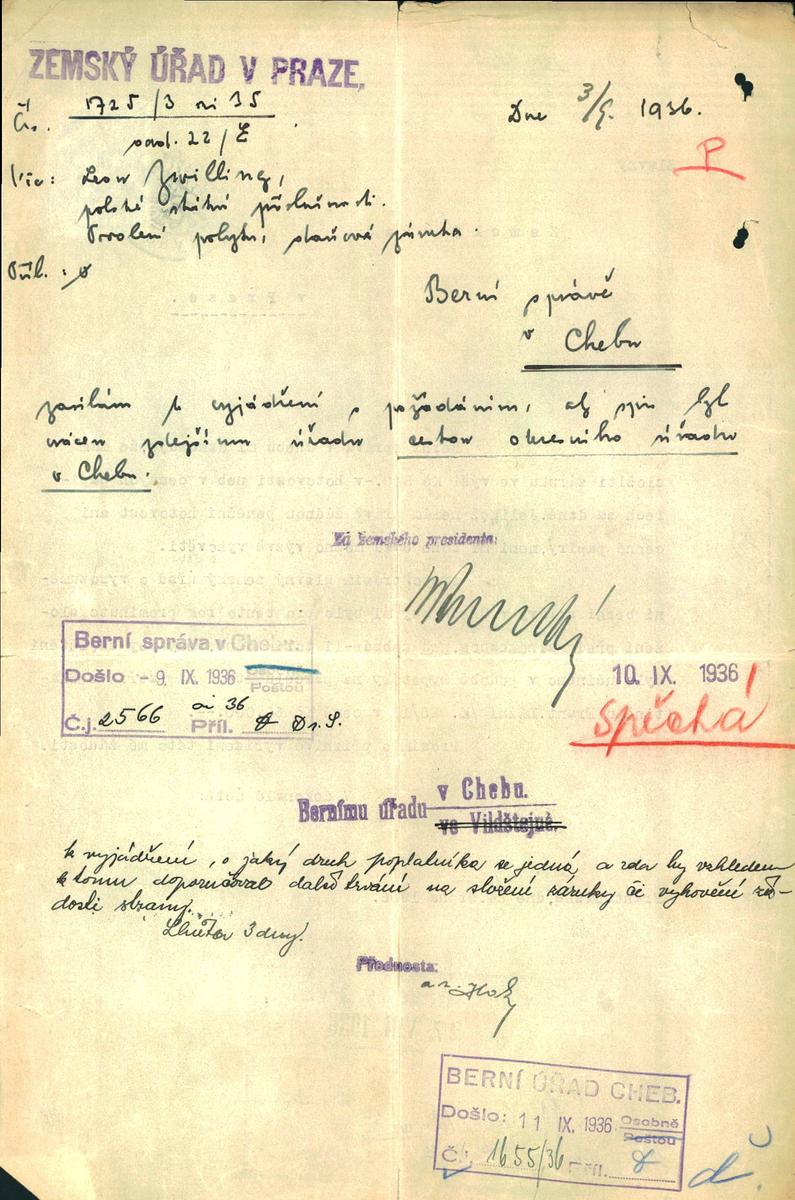 ZEMSKÝ ÚŘAD V PRAZE,
Čís. 1725/3 ai 35
odd. 22/E
Dne 3/9. 1936.
P
Věc: Leon Zwilling,
polské státní příslušnosti.
Povolení pobytu, daňová záruka.
Příl.: ø
Berní správě
v
Chebu
zasílám k vyjádření s požádáním, aby spis byl
vrácen zdejšímu úřadu cestou okresního úřadu
v Chebu.
Za zemského presidenta:
Berní správa v Chebu
Došlo - 9. IX. 1936 Osobně
Poštou
Č.j. 2566 ai 36 Příl. ø Dr. S.
10. IX. 1936
Spěchá!
Bernímu úřadu v Chebu.
ve Vildštejně.
k vyjádření, o jaký druh poplatníka se jedná, a zda by vzhledem
k tomu doporučoval další trvání na složení záruky či vyhovění žá-
dosti strany.
Lhůta 3 dny.
Přednosta:
BERNÍ ÚŘAD CHEB.
Došlo: 11 IX. 1936 Osobně
Poštou
Č.j. 1655/36 Příl. ø